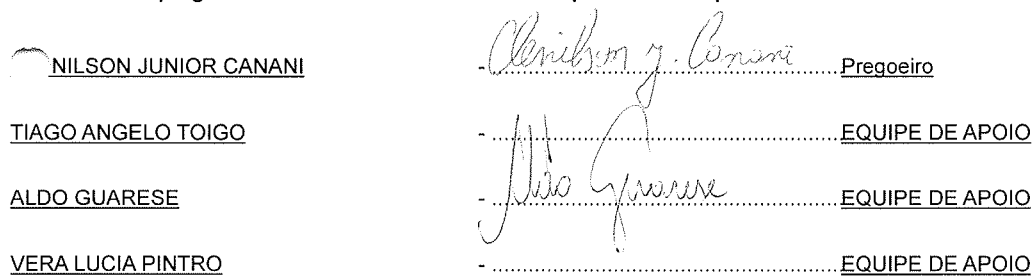 NILSON JUNIOR CANANI - Clenilson J. Canani Pregoeiro
TIAGO ANGELO TOIGO - EQUIPE DE APOIO
ALDO GUARESE - Aldo Guarese EQUIPE DE APOIO
VERA LUCIA PINTRO - EQUIPE DE APOIO